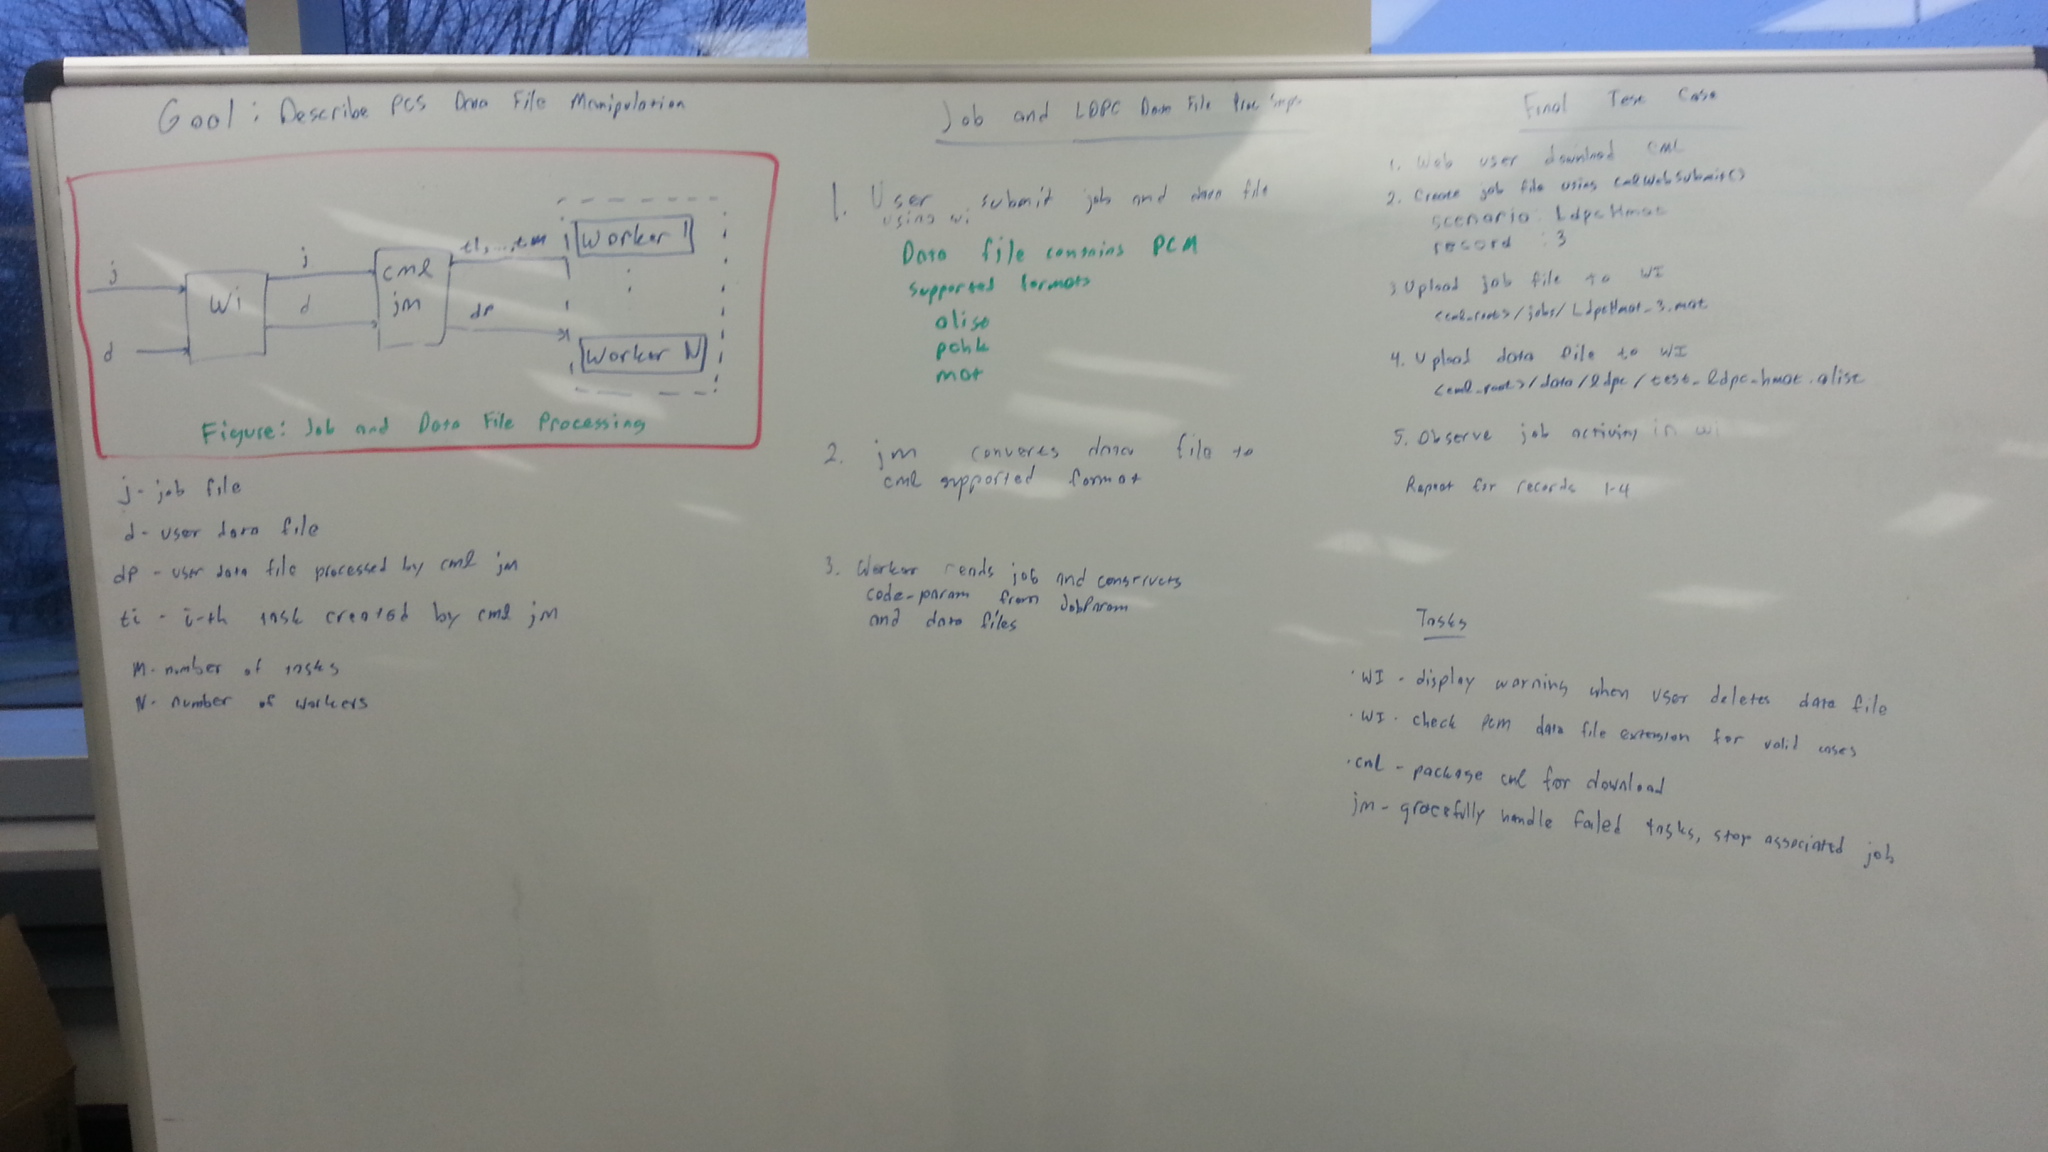 Goal: Describe PCS Data File Manipulation
j
d
Wi
j
d
cml
jm
t1,...,tm
dp
Worker 1
Worker N
Figure: Job and Data File Processing
j - job file
d - user data file
dp - user data file processed by cml jm
ti - i-th task created by cml jm
M - number of tasks
N - number of workers
Job and LDPC Data File Proc Steps
1. User submit job and data file
using wi
Data file contains PCM
supported formats
alist
pchk
mat
2. jm converts data file to
cml supported format
3. Worker reads job and constructs
code-param from JobParam
and data files
Final Test Case
1. Web user download CML
2. Create job file using CmlWebSubmit()
scenario: LdpcHmat
record : 3
3 Upload job file to WI
<cml_root>/jobs/LdpcHmat_3.mat
4. Upload data file to WI
<cml_root>/data/ldpc/test_ldpc_hmat.alist
5. Observe job activity in wi
Repeat for records 1-4
Tasks
· WI - display warning when user deletes data file
· WI - check pcm data file extension for valid cases
· cml - package cml for download
jm - gracefully handle failed tasks, stop associated job